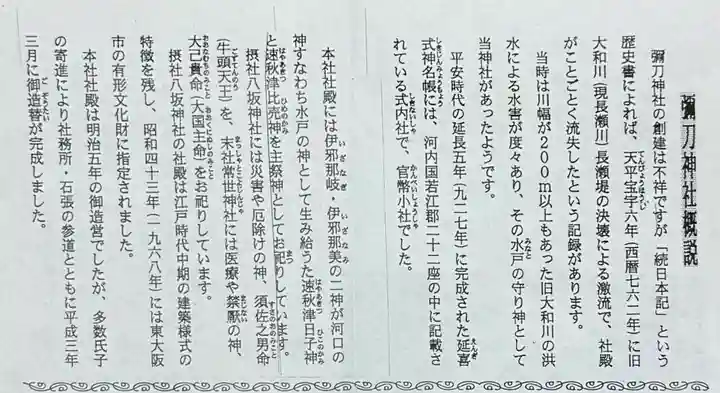 彌刀神社概説
彌刀神社の創建は不祥ですが「続日本記」という
歴史書によれば、天平宝字六年(西暦七六二年)に旧
大和川(現長瀬川)長瀬堤の決壊による激流で、社殿
がことごとく流失したという記録があります。
当時は川幅が200m以上もあった旧大和川の洪
水による水害が度々あり、その水戸の守り神として
当神社があったようです。
平安時代の延長五年(九二七年)に完成された延喜
式神名帳には、河内国若江郡二十二座の中に記載さ
れている式内社で、官幣小社でした。
本社社殿には伊邪那岐・伊邪那美の二神が河口の
神すなわち水戸の神として生み給うた速秋津日子神
と速秋津比売神を主祭神としてお祀りしています。
摂社八坂神社には災害や厄除けの神、須佐之男命
(牛頭天王)を、末社常世神社には医療や禁厭の神、
大己貴命(大国主命)をお祀りしています。
摂社八坂神社の社殿は江戸時代中期の建築様式の
特徴を残し、昭和四十三年(一九六八年)には東大阪
市の有形文化財に指定されました。
本社社殿は明治五年の御造営でしたが、多数氏子
の寄進により社務所・石張の参道とともに平成三年
三月に御造替が完成しました。